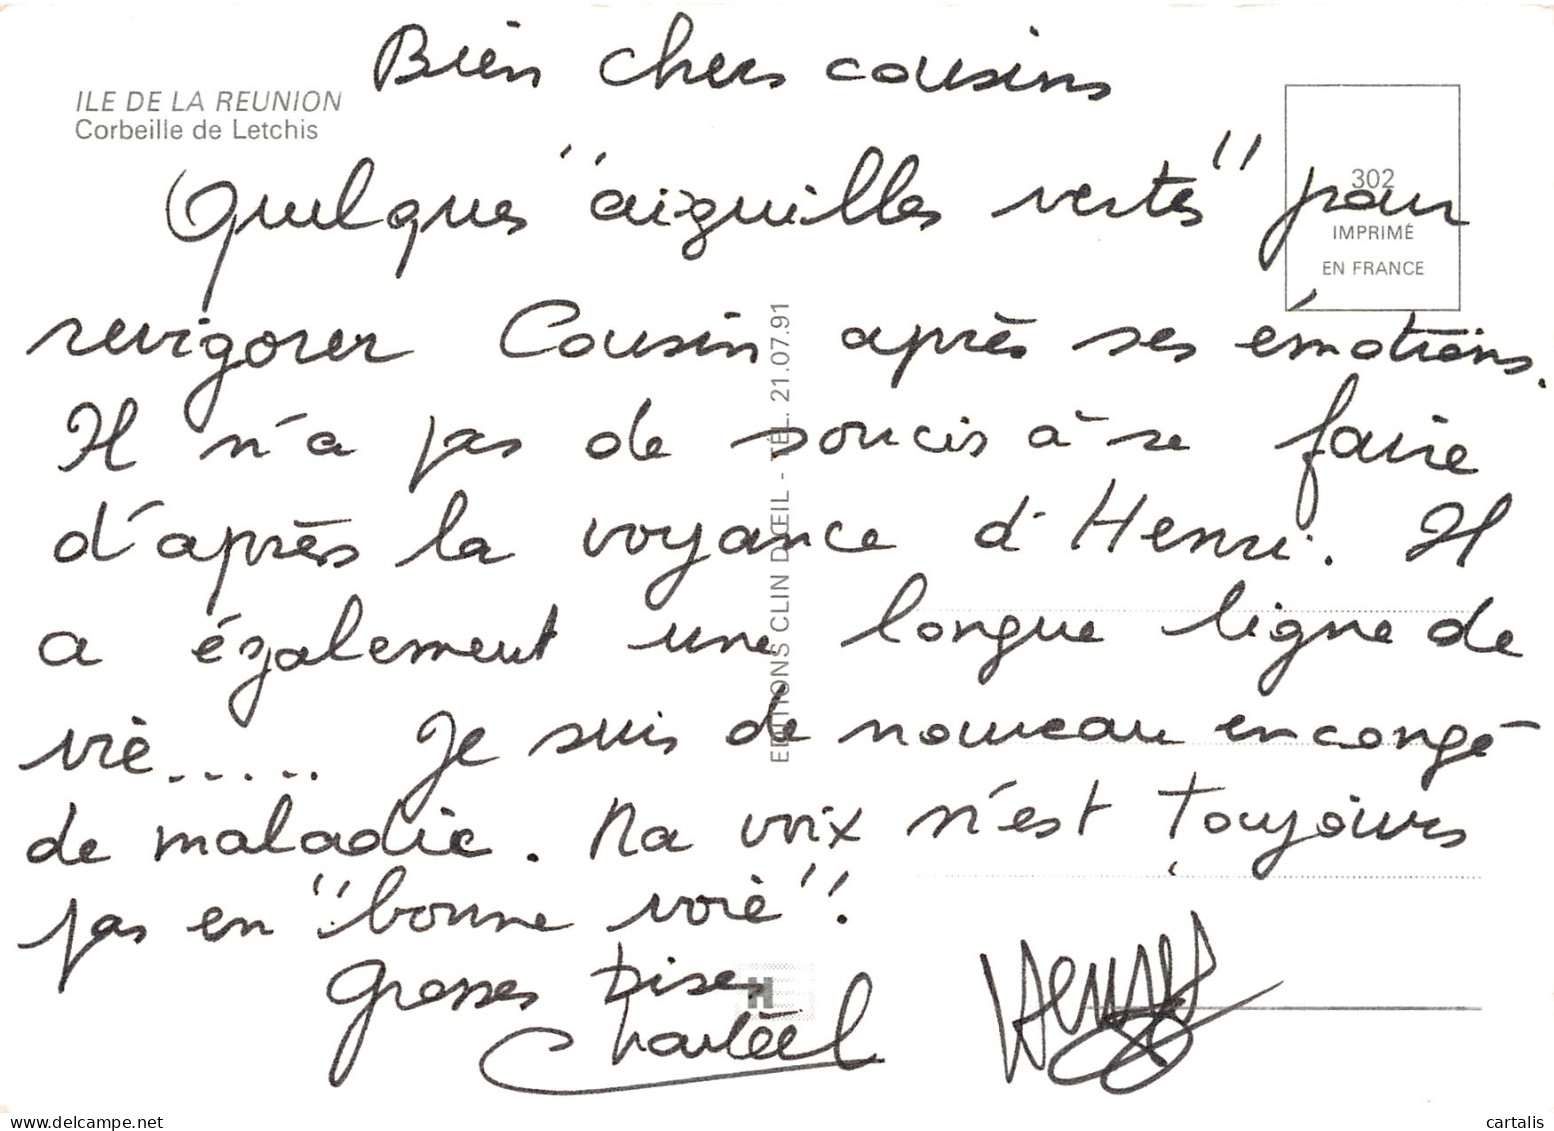 Bien chers cousins
ILE DE LA REUNION
Corbeille de Letchis
302
IMPRIMÉ
EN FRANCE
Quelques "aiguilles vertes" pour
revigorer Cousin après ses émotions.
Il n'a pas de soucis à se faire
d'après la voyance d'Henri. Il
a également une longue ligne de
vie..... Je suis de nouveau en congé
de maladie. Ma voix n'est toujours
pas en "bonne voie".
Grosses bises
EDITIONS CLIN D'ŒIL - TÉL. 21.07.91
H
www.delcampe.net
cartalis